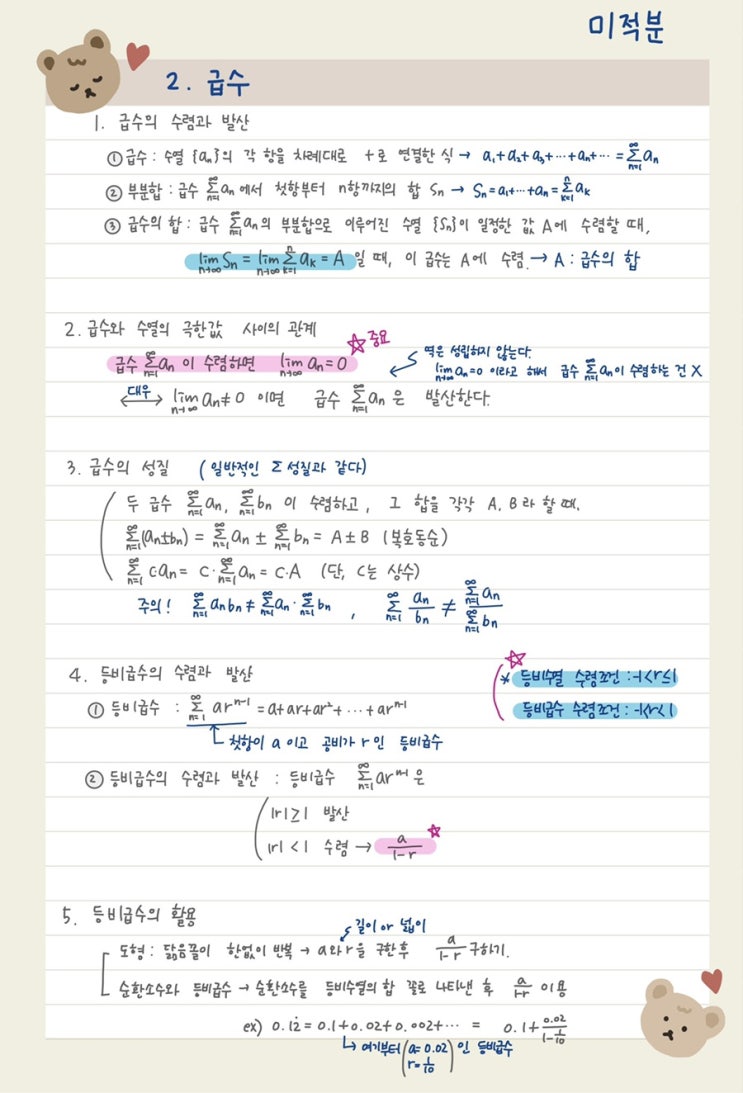 미적분
2. 급수
1. 급수의 수렴과 발산
① 급수 : 수열 {aₙ}의 각 항을 차례대로 +로 연결한 식 → a₁+a₂+a₃+⋯+aₙ+⋯ = ∑_{n=1}^{∞} aₙ
② 부분합 : 급수 ∑_{n=1}^{∞} aₙ 에서 첫항부터 n항까지의 합 Sₙ → Sₙ = a₁+⋯+aₙ = ∑_{k=1}^{n} aₖ
③ 급수의 합 : 급수 ∑_{n=1}^{∞} aₙ의 부분합으로 이루어진 수열 {Sₙ}이 일정한 값 A에 수렴할 때,
lim_{n→∞} Sₙ = lim_{n→∞} ∑_{k=1}^{n} aₖ = A 일 때, 이 급수는 A에 수렴. → A : 급수의 합
2. 급수와 수열의 극한값 사이의 관계
☆중요
급수 ∑_{n=1}^{∞} aₙ 이 수렴하면 lim_{n→∞} aₙ = 0
역은 성립하지 않는다.
lim_{n→∞} aₙ=0 이라고 해서 급수 ∑_{n=1}^{∞} aₙ이 수렴하는 건 X
대우 ⟷ lim_{n→∞} aₙ ≠ 0 이면 급수 ∑_{n=1}^{∞} aₙ 은 발산한다.
3. 급수의 성질 (일반적인 Σ 성질과 같다)
두 급수 ∑_{n=1}^{∞} aₙ, ∑_{n=1}^{∞} bₙ 이 수렴하고, 그 합을 각각 A, B라 할 때.
∑_{n=1}^{∞} (aₙ±bₙ) = ∑_{n=1}^{∞} aₙ ± ∑_{n=1}^{∞} bₙ = A ± B (복호동순)
∑_{n=1}^{∞} c·aₙ = c·∑_{n=1}^{∞} aₙ = c·A (단, c는 상수)
주의! ∑_{n=1}^{∞} aₙbₙ ≠ ∑_{n=1}^{∞} aₙ · ∑_{n=1}^{∞} bₙ , ∑_{n=1}^{∞} aₙ/bₙ ≠ ∑_{n=1}^{∞} aₙ / ∑_{n=1}^{∞} bₙ
4. 등비급수의 수렴과 발산
☆
* 등비수열 수렴조건 : -1<r≤1
등비급수 수렴조건 : -1<r<1
① 등비급수 : ∑_{n=1}^{∞} arⁿ⁻¹ = a+ar+ar²+⋯+arⁿ⁻¹
첫항이 a 이고 공비가 r 인 등비급수
② 등비급수의 수렴과 발산 : 등비급수 ∑_{n=1}^{∞} arⁿ⁻¹ 은
|r| ≥ 1 발산
|r| < 1 수렴 → a/(1-r) ☆
5. 등비급수의 활용
길이 or 넓이
도형 : 닮음꼴이 한없이 반복 → a와 r을 구한 후 a/(1-r) 구하기.
순환소수와 등비급수 → 순환소수를 등비수열의 합 꼴로 나타낸 후 a/(1-r) 이용
ex) 0.12̇ = 0.1+0.02+0.002+⋯ = 0.1 + 0.02/(1-1/10)
↳ 여기부터 (a=0.02 r=1/10) 인 등비급수